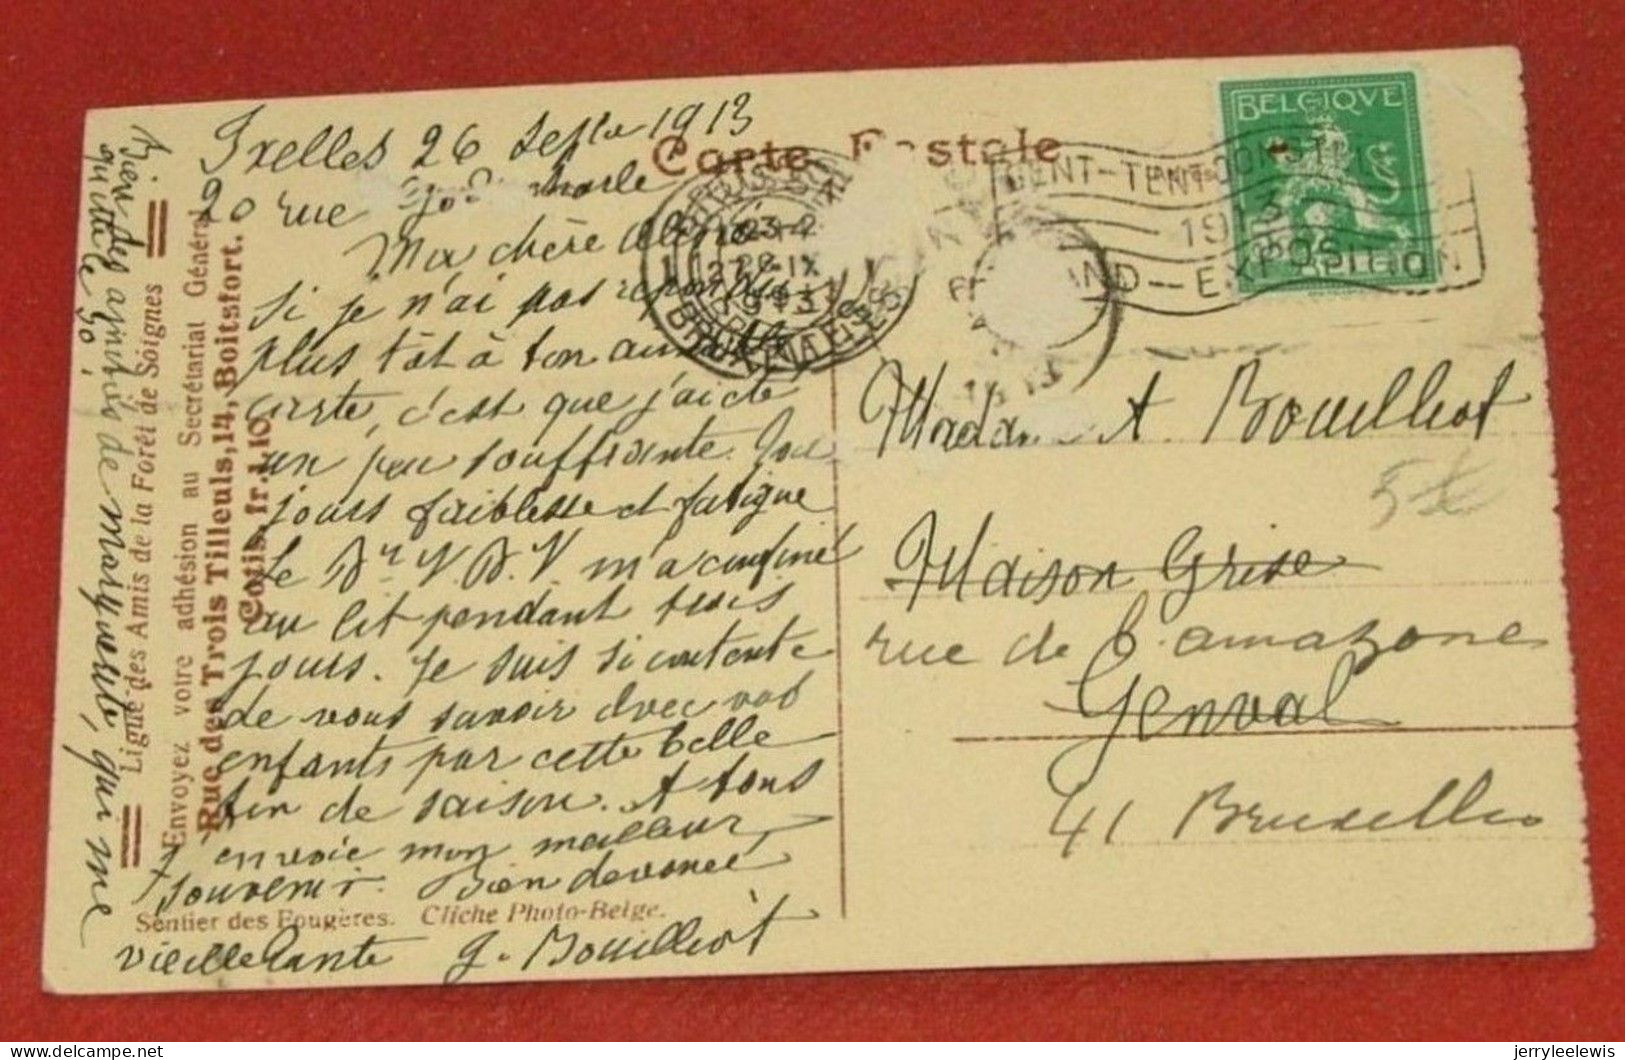 Ixelles 26 Septbre 1913
20 rue
Ma chère
si je n'ai pas
plus tôt à ton aimable
carte, c'est que j'ai été
un peu souffrante. Tou
jours faiblesse et fatigue
Le Dr V. D. V m'a confiné
au lit pendant trois
jours. Je suis si contente
de vous savoir avec vos
enfants par cette belle
fin de saison. A tous
envoie mon meilleur
souvenir. Bien devouée
vieille tante g. Bouilliot
Bien des amitiés de
qui me
quitte le 30!
Carte Postale
BELGIQUE
GENT-TENTOONST
1913
GAND-EXPOSITION
23-2
27-IX
1913
BRUXELLES
Madame A. Bouilliot
Maison Grise
rue de l'amazone
Genval
41 Bruxelles
5€
Ligue des Amis de la Forêt de Soignes
Envoyez votre adhésion au Secrétariat Général
Rue des Trois Tilleuls, 14, Boitsfort.
Cotis. fr. 1,10
Sentier des Fougères. Cliche Photo-Belge.
jerryleelewis